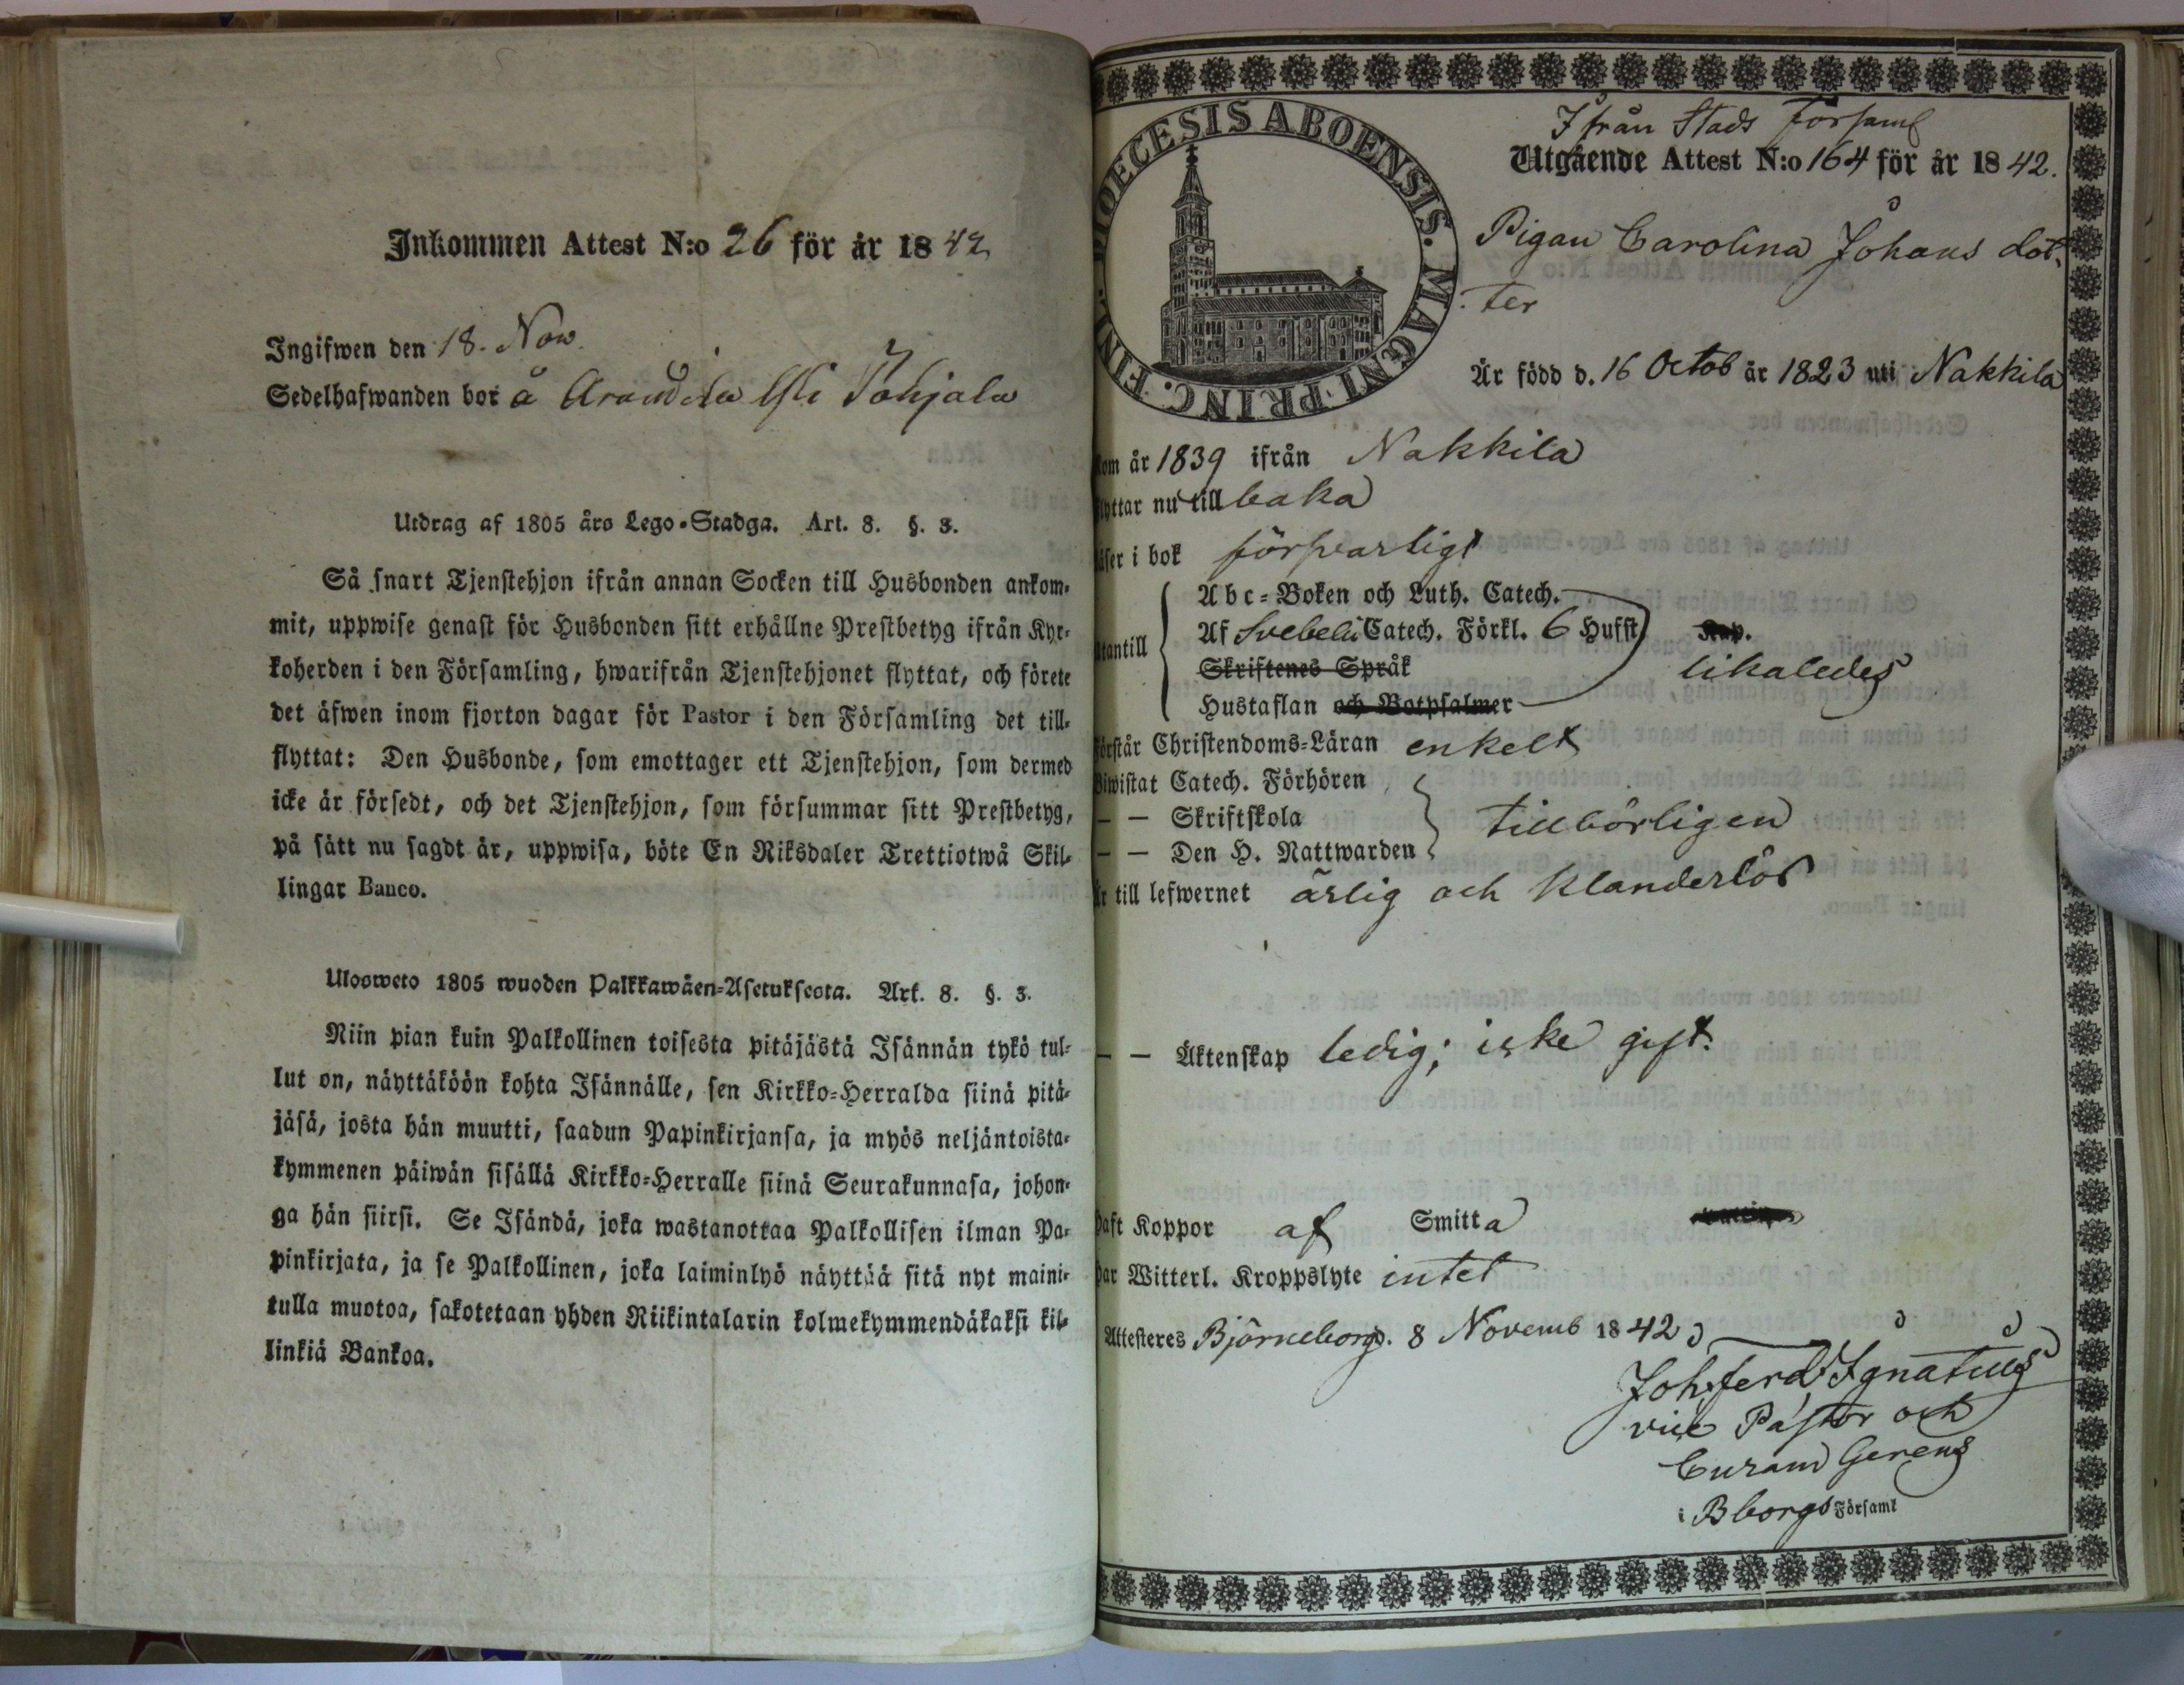 Inkommen Attest N:o 26 för år 1842
Ingifwen den 18. Nov.
Sedelhafwanden bor å
Utdrag af 1805 års Lego-Stadga. Art. 8. §. 3.
Så snart Tjenstehjon ifrån annan Socken till Husbonden ankom-
mit, uppwise genast för Husbonden sitt erhållne Prestbetyg ifrån Kyr-
koherden i den Församling, hwarifrån Tjenstehjonet flyttat, och förete
det äfwen inom fjorton dagar för Pastor i den Församling det till-
flyttat: Den Husbonde, som emottager ett Tjenstehjon, som dermed
icke är försedt, och det Tjenstehjon, som försummar sitt Prestbetyg,
på sätt nu sagdt är, uppwisa, böte En Riksdaler Trettiotwå Skil-
lingar Banco.
Ulosweto 1805 wuoden Palkkawäen-Asetuksesta. Art. 8. §. 3.
Niin pian kuin Palkollinen toisesta pitäjästä Isännän tykö tul-
lut on, näyttäköön kohta Isännälle, sen Kirkko-Herralda siinä pitä-
jäsä, josta hän muutti, saadun Papinkirjansa, ja myös neljäntoista-
kymmenen päiwän sisällä Kirkko-Herralle siinä Seurakunnasa, johon-
ga hän siirsi. Se Isändä, joka wastanottaa Palkollisen ilman Pa-
pinkirjata, ja se Palkollinen, joka laiminlyö näyttää sitä nyt maini-
tulla muotoa, sakotetaan yhden Riikintalarin kolmekymmendäkaksi kil-
linkiä Bankoa.
DIOECESIS ABOENSIS. MAGNI PRINC. FINL.
Ifrån Stads Församl
Utgående Attest N:o 164 för år 1842.
Pigan Carolina Johans dot-
ter
Är född d. 16 Octob år 1823 uti Nakkila
Kom år 1839 ifrån Nakkila
flyttar nu tillbaka
Läser i bok försvarligt
Utantill
Abc-Boken och Luth. Catech.
Af Svebelii Catech. Förkl. 6 Hufst Kap.
Skriftenes Språk
likaledes
Hustaflan och Botpsalmer
Förstår Christendoms-Läran enkelt
Biwistat Catech. Förhören
— — Skriftskola
tillbörligen
— — Den H. Nattwarden
Är till lefwernet ärlig och klanderlös
— — Äktenskap ledig; icke gift.
Haft Koppor af Smitta
Har Witterl. Kroppslyte intet
Attesteres Björneborg d. 8 Novemb 1842
Joh. Ferd. Ignatius
vice Pastor och
Curam Gerens
i Bborgs Församl